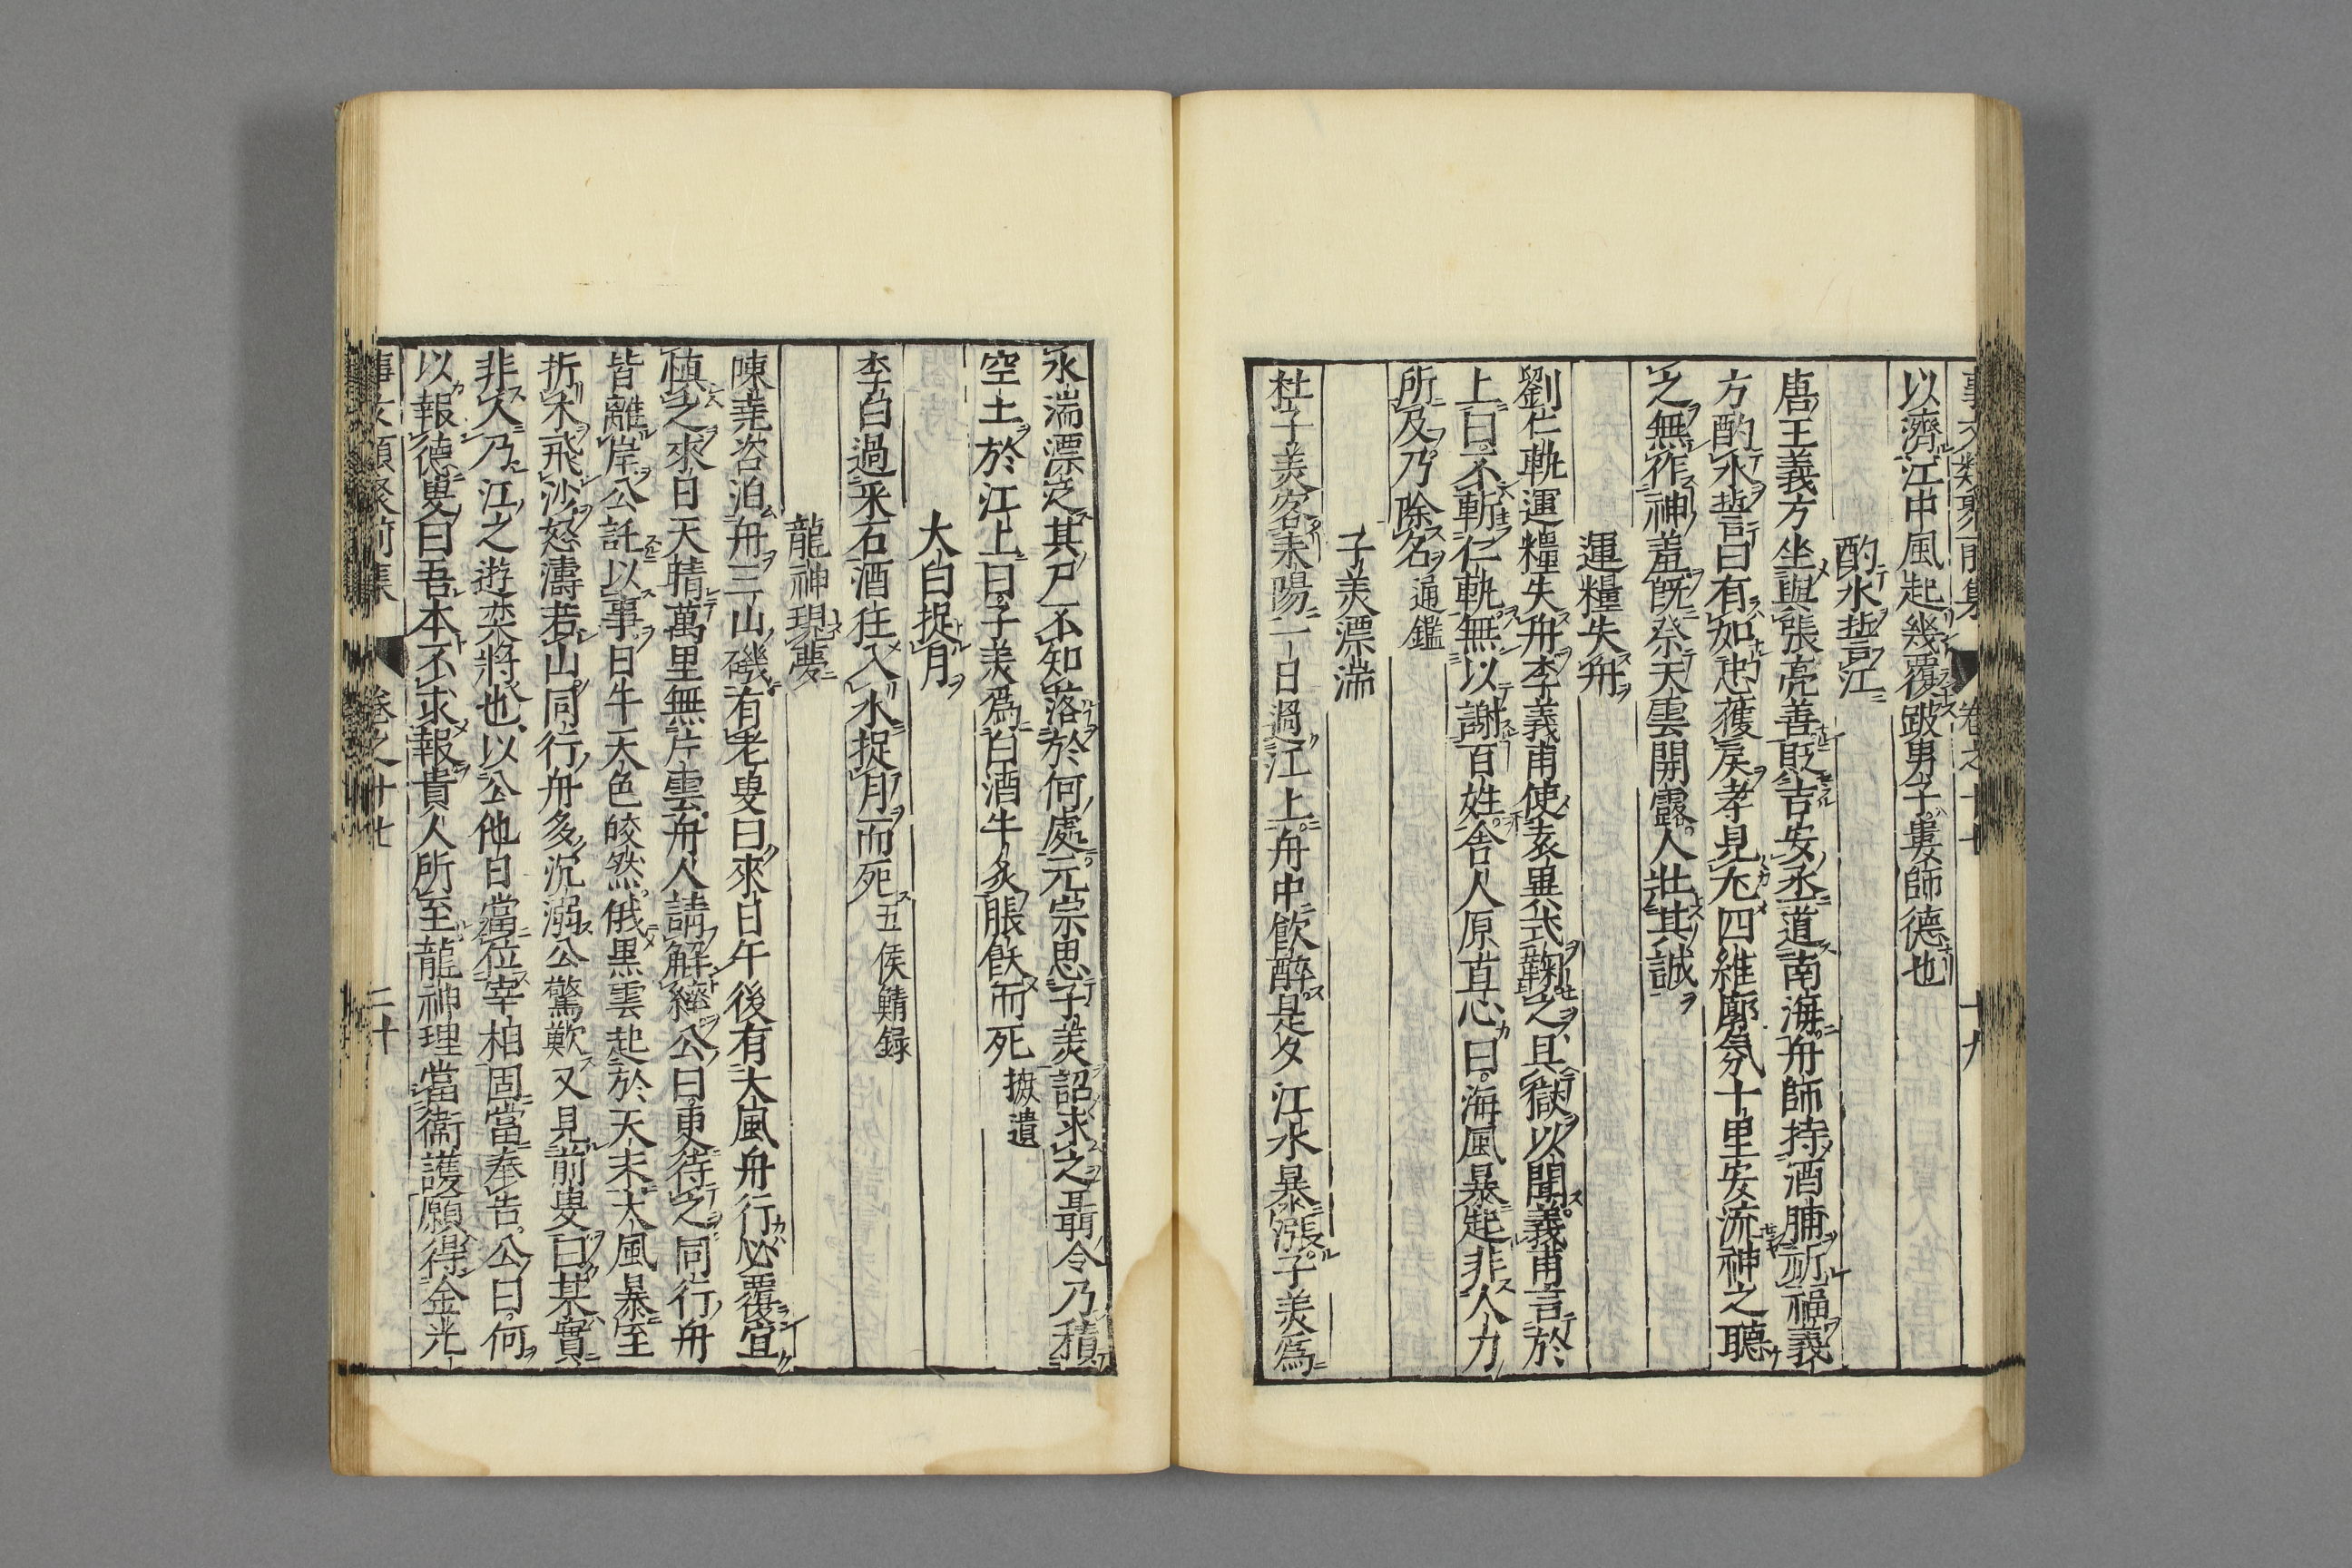 以濟江中風起幾覆跛男子婁師德也
酌水誓江
唐王義方坐與張亮善貶吉安丞道南海舟師持酒脯祈福義
方酌水誓曰有如忠獲戾孝見尤四維廓氛十里安流神之聽
之無作神羞既祭天雲開露人壯其誠
運糧失舟
劉仁軌運糧失舟李義甫使袁異式鞫之具獄以聞義甫言於
上曰不斬仁軌無以謝百姓舍人原直心曰海風暴起非人力
所及乃除名 通鑑
子美漂湍
杜子美客耒陽一日過江上舟中飲醉是夕江水暴漲子美爲
水湍漂泛其尸不知落於何處元宗思子美詔求之聶令乃積
空土於江上曰子美爲白酒牛炙脹飫而死 摭遺
大白捉月
李白過采石酒狂入水捉月而死 五侯鯖録
龍神現夢
陳堯咨泊舟三山磯有老叟曰來日午後有大風舟行必覆宜
慎之來日天晴萬里無片雲舟人請解縴公曰更待之同行舟
皆離岸公託以事日午天色皎然俄黒雲起於天末大風暴至
折木飛沙怒濤若山同行舟多沉溺公驚歎又見前叟曰某實
非人乃江之遊奕將也以公他日當位宰相固當奉告公曰何
以報德叟曰吾本不求報貴人所至龍神理當衞護願得金光
卷之十七 二十